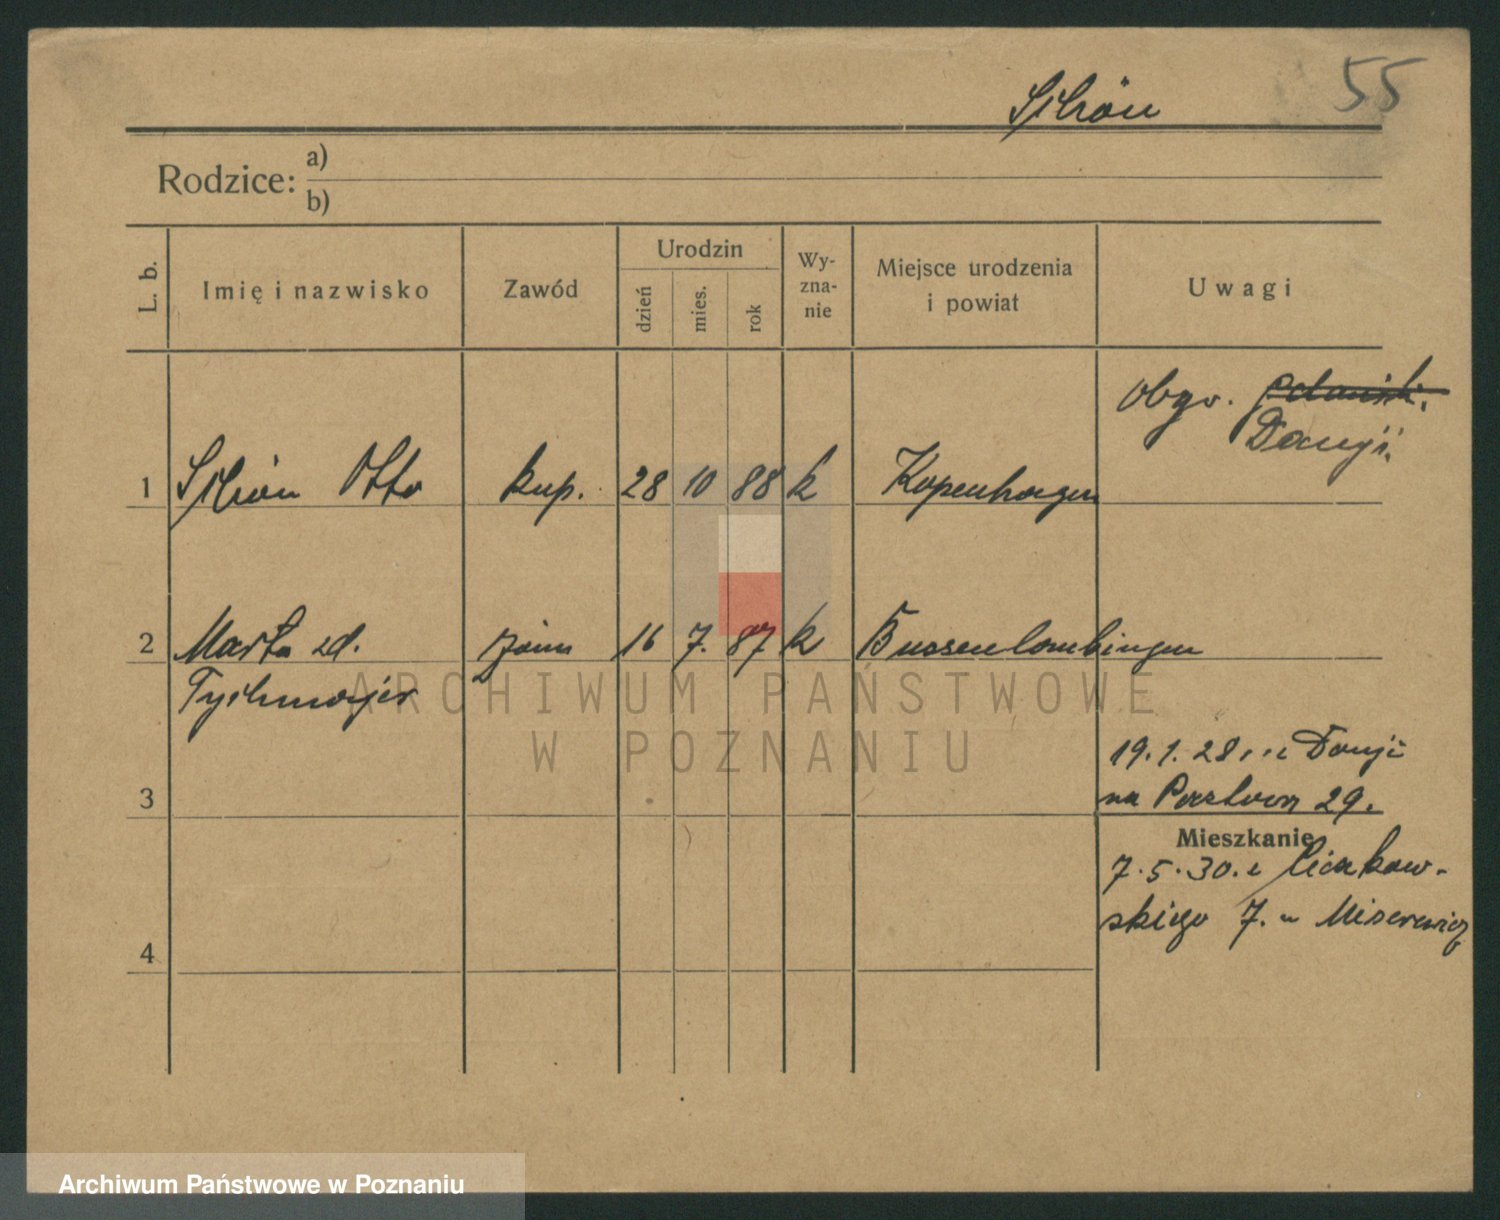 55
Schön
Rodzice: a)
b)
L. b.
Imię i nazwisko
Zawód
Urodzin
dzień
mies.
rok
Wy-
zna-
nie
Miejsce urodzenia
i powiat
Uwagi
Obyw. Gdański.
Danji.
1 Schön Otto kup. 28 10 88 k Kopenhagen
2 Marta zd. 16 7. 87 k
3
19.1.28 z Danji
na 29.
Mieszkanie
7.5.30. z
skiego 7. u
4
ARCHIWUM PAŃSTWOWE
W POZNANIU
Archiwum Państwowe w Poznaniu